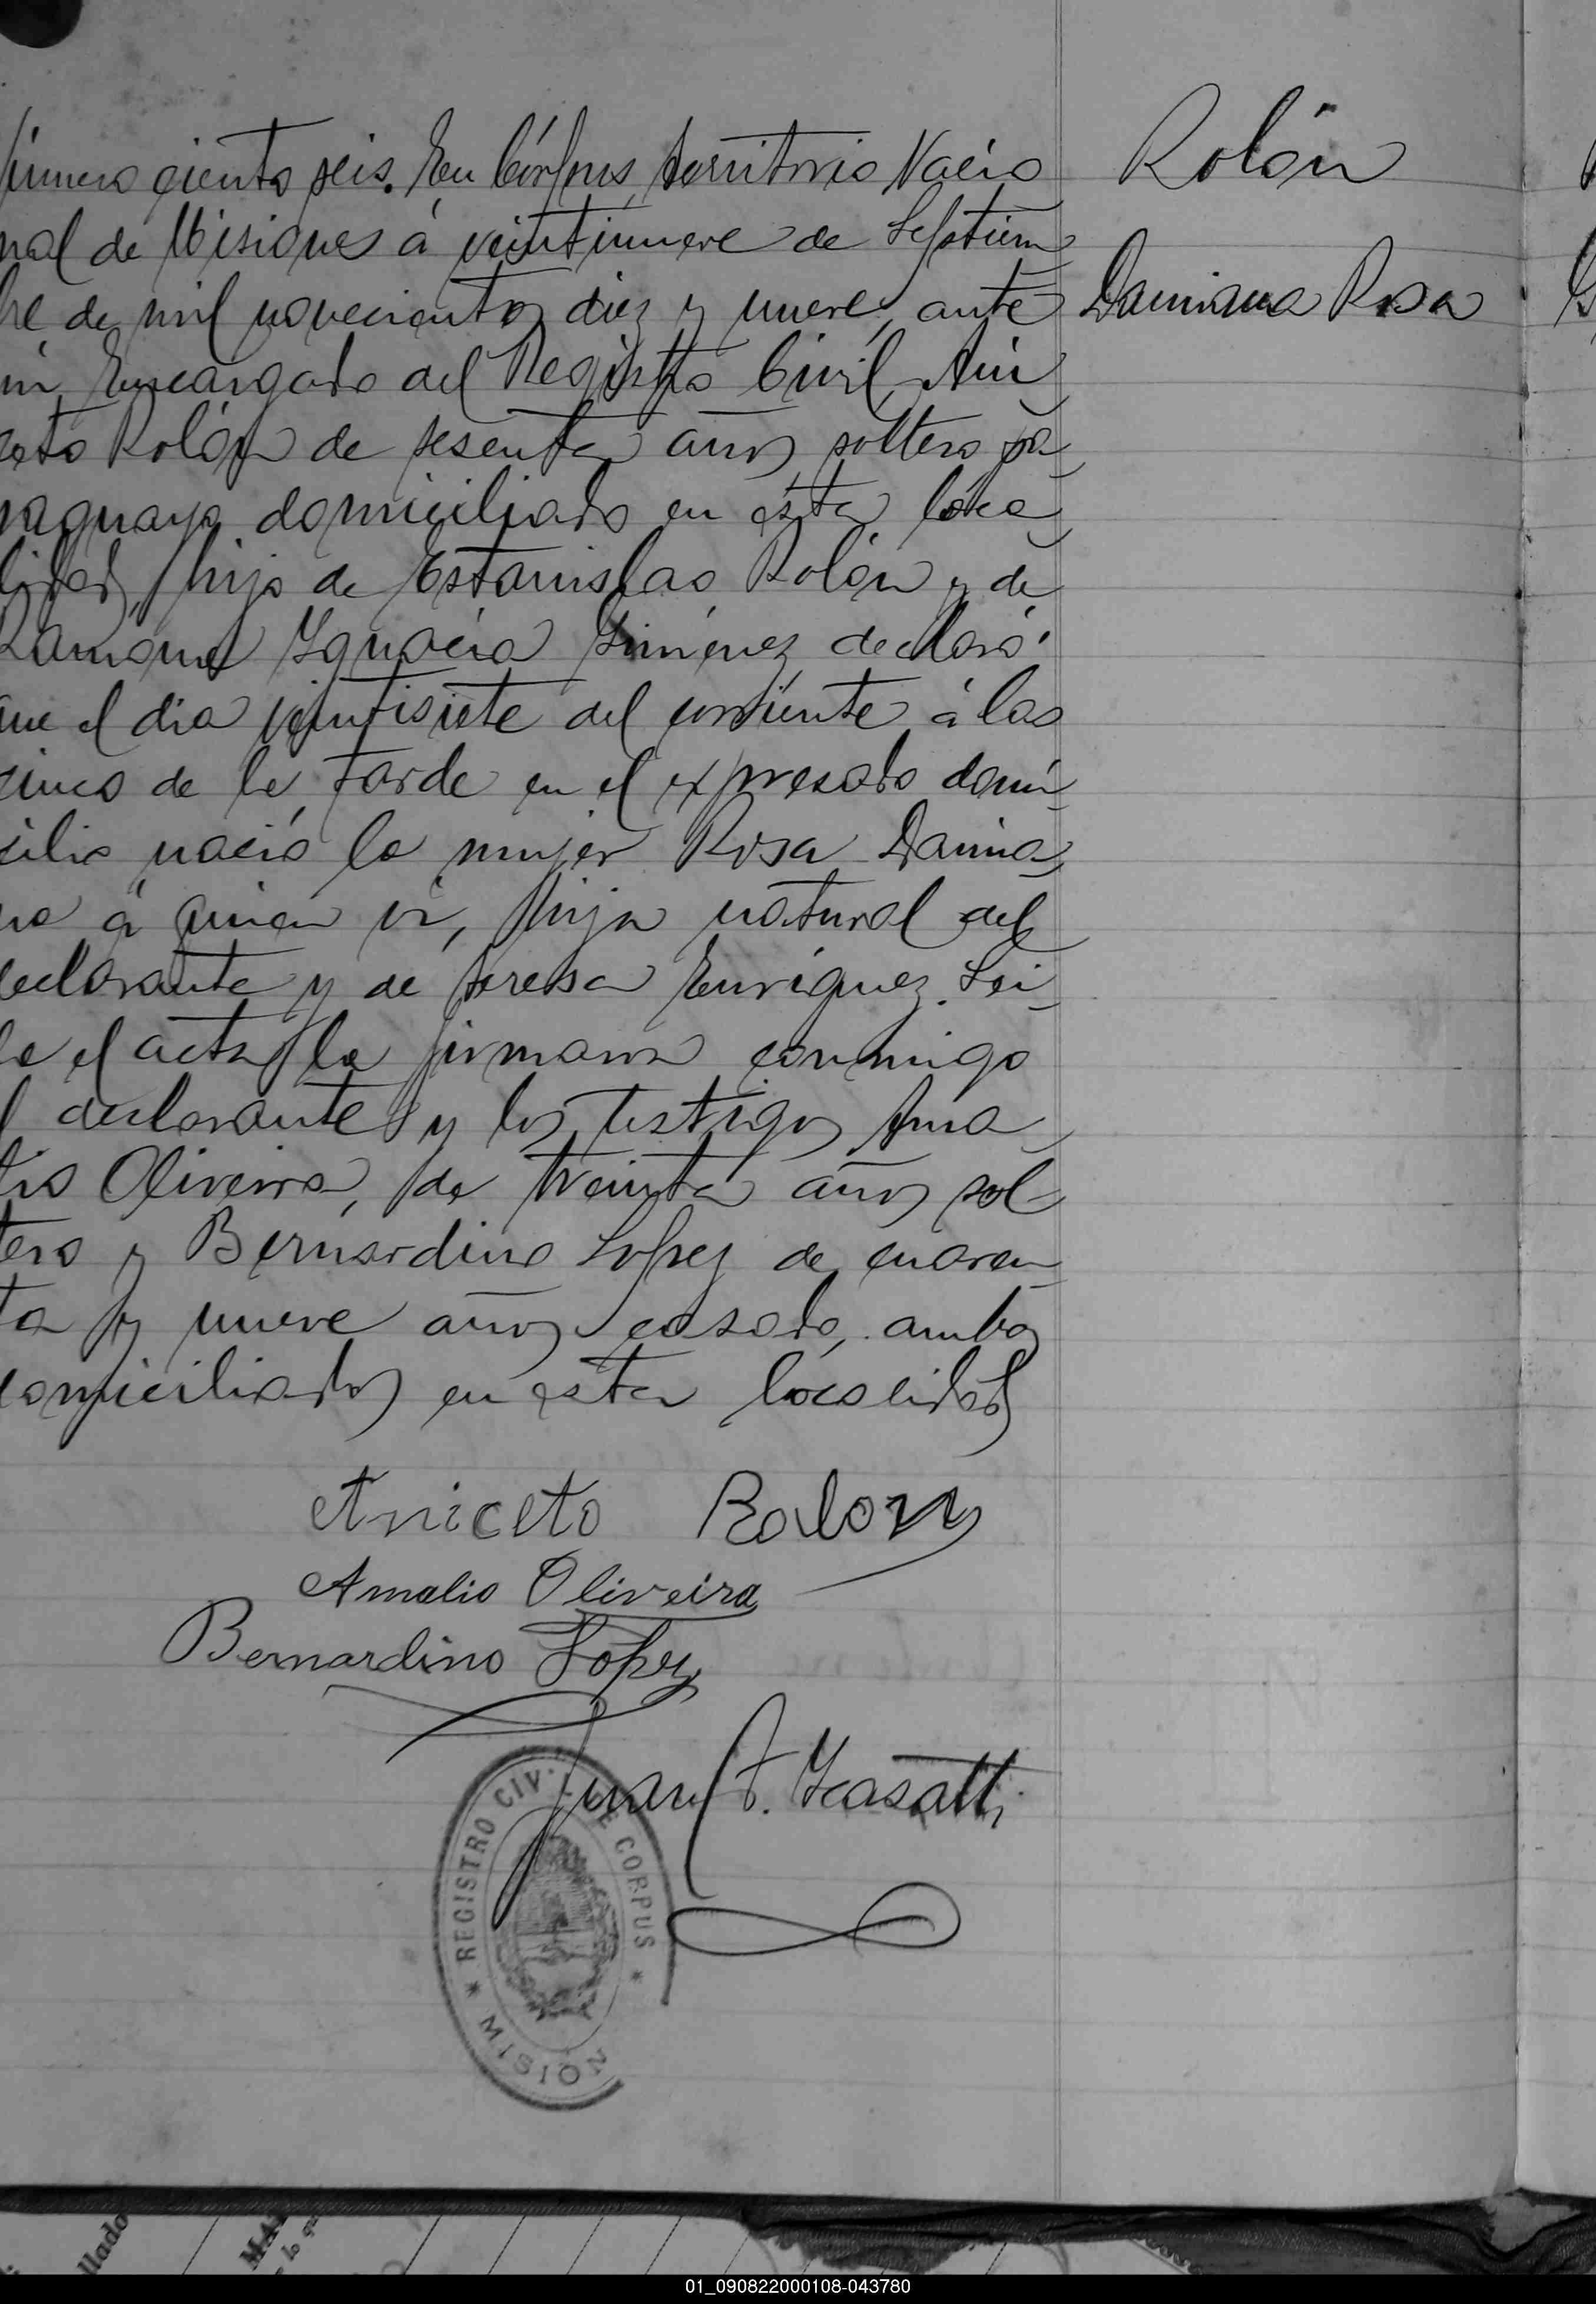 Número ciento seis. En Córpus, territorio Nacio
nal de Misiones á veintinueve de Septiem
bre de mil novecientos diez y nueve, ante
mi, Encargado del Registro Civil, Ani
ceto Rolón de sesenta años soltero pa
raguayo domiciliado en ésta loca
lidad, hijo de Estanislao Rolón y de
Ramona Ygnacia Giménez declaró
que el dia veintisiete del corriente á las
cinco de la tarde en el expresado domi
cilio nació la mujer Rosa Damia
na á quien vi, hija natural del
declarante y de teresa Enriquez. Lei
da el acta la firmaron conmigo
el declarante y los testigos Ama
lio Oliveira, de treinta años sol
tero y Bernardino Lopez de cuaren
ta y nueve años casado, ambos
domiciliados en esta localidad
Rolón
Damiana Rosa
Aniceto Rolon
Amalio Oliveira
Bernardino Lopez
Juan F. Ycasatti
REGISTRO CIVIL DE CORPUS
* MISION *
llado
01_090822000108-043780